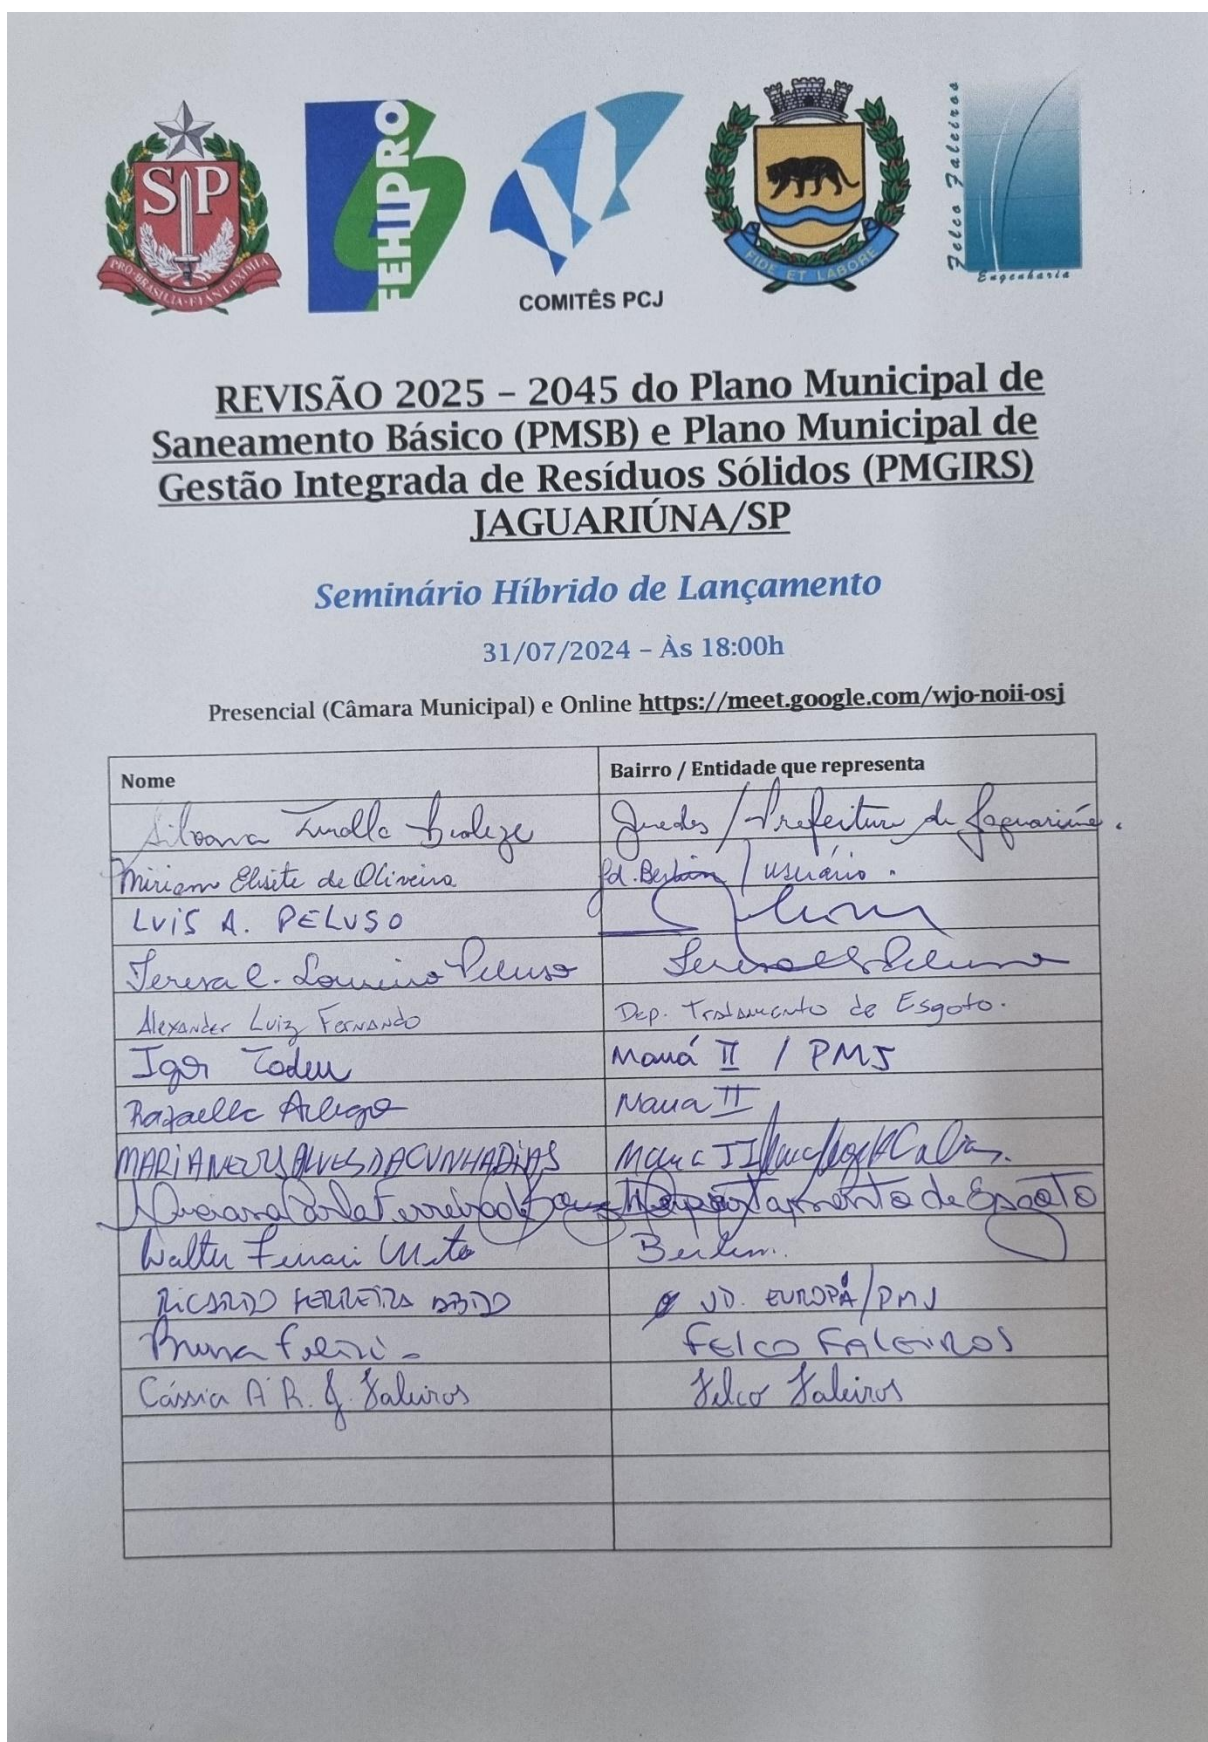 SP
PRO·BRASILIA·FIANT·EXIMIA
FEHIDRO
COMITÊS PCJ
FIDE ET LABORE
Felco Faleiros
Engenharia
REVISÃO 2025 – 2045 do Plano Municipal de
Saneamento Básico (PMSB) e Plano Municipal de
Gestão Integrada de Resíduos Sólidos (PMGIRS)
JAGUARIÚNA/SP
Seminário Híbrido de Lançamento
31/07/2024 – Às 18:00h
Presencial (Câmara Municipal) e Online https://meet.google.com/wjo-noii-osj
Nome Bairro / Entidade que representa
Silvana Guedes / Prefeitura de Jaguariúna.
Miriam Elisite de Oliveira usuário.
LUIS A. PELUSO
Teresa C. Loureiro Peluso
Alexander Luiz Fernando Dep. Tratamento de Esgoto.
Igor Tadeu Mauá II / PMJ
Rafaella Maua II
MARIA NEUSA ALVES DA CUNHA DIAS Maua II
Ferreira de Departamento de Esgoto
Walter Ferrari Neto
RICARDO FERREIRA JD. EUROPA/PMJ
Bruna FELCO FALEIROS
Cássia A R. G. Faleiros Felco Faleiros